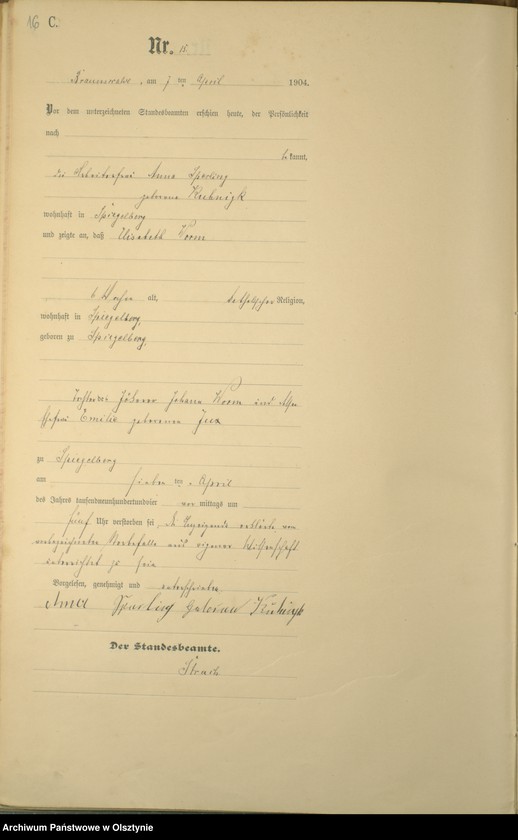 16 C.
Nr. 15
Braunswalde, am 7 ten April 1904.
Vor dem unterzeichneten Standesbeamten erschien heute, der Persönlichkeit
nach
bekannt,
die Arbeiterfrau Anna Sperling
geborene
wohnhaft in Spiegelberg
und zeigte an, daß Elisabeth
6 Wochen alt, katholischer Religion,
wohnhaft in Spiegelberg,
geboren zu Spiegelberg,
Tochter des Johann und
Ehefrau Emilie geborenen
zu Spiegelberg
am sieben ten April
des Jahres tausendneunhundertundvier vor mittags um
fünf Uhr verstorben sei. Die Anzeigende erklärte von
Sterbefalle aus eigener Wissenschaft
unterrichtet zu sein
Vorgelesen, genehmigt und unterschrieben
Anna Sperling geboren
Der Standesbeamte.
Archiwum Państwowe w Olsztynie